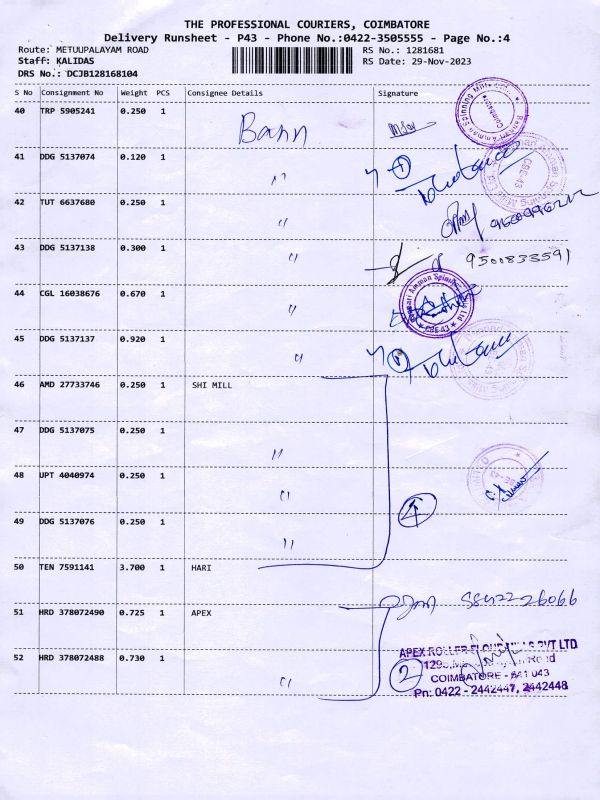 THE PROFESSIONAL COURIERS, COIMBATORE
Delivery Runsheet - P43 - Phone No.:0422-3505555 - Page No.:4
Route: METUUPALAYAM ROAD RS No.: 1281681
Staff: KALIDAS RS Date: 29-Nov-2023
DRS No.: DCJB128168104
S No Consignment No Weight PCS Consignee Details Signature
40 TRP 5905241 0.250 1
41 DDG 5137074 0.120 1 "
42 TUT 6637680 0.250 1 "
43 DDG 5137138 0.300 1 " 9500833591
44 CGL 16038676 0.670 1 "
45 DDG 5137137 0.920 1 "
46 AMD 27733746 0.250 1 SHI MILL
47 DDG 5137075 0.250 1 "
48 UPT 4040974 0.250 1 "
49 DDG 5137076 0.250 1 "
50 TEN 7591141 3.700 1 HARI
51 HRD 378072490 0.725 1 APEX
52 HRD 378072488 0.730 1 "
APEX ROLLER FLOUR MILLS PVT LTD
Road
2 COIMBATORE - 641 043
Pn: 0422 - 2442447, 2442448